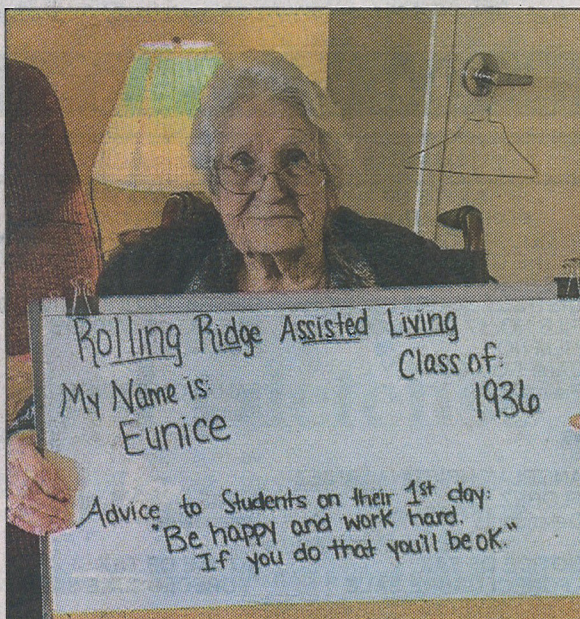 Rolling Ridge Assisted Living
Class of:
My Name is:
1936
Eunice
Advice to Students on their 1st day:
"Be happy and work hard.
If you do that you'll be ok."